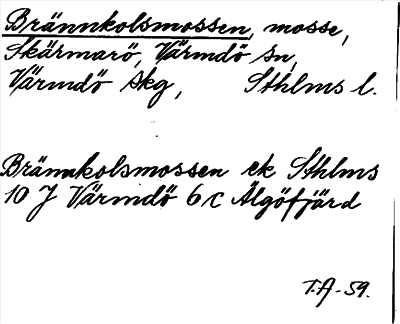 Brännkolsmossen, mosse,
Skärmarö, Värmdö sn,
Värmdö skg, Sthlms l.
Brännkolsmossen ek Sthlms
10 J Värmdö 6 c Älgöfjärd
T.A-59.